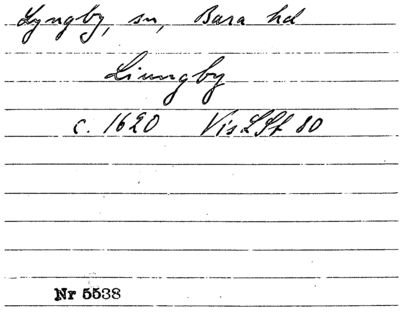 Lyngby, sn, Bara hd
Liungby
c. 1620 VisLSt 80
Nr 5538